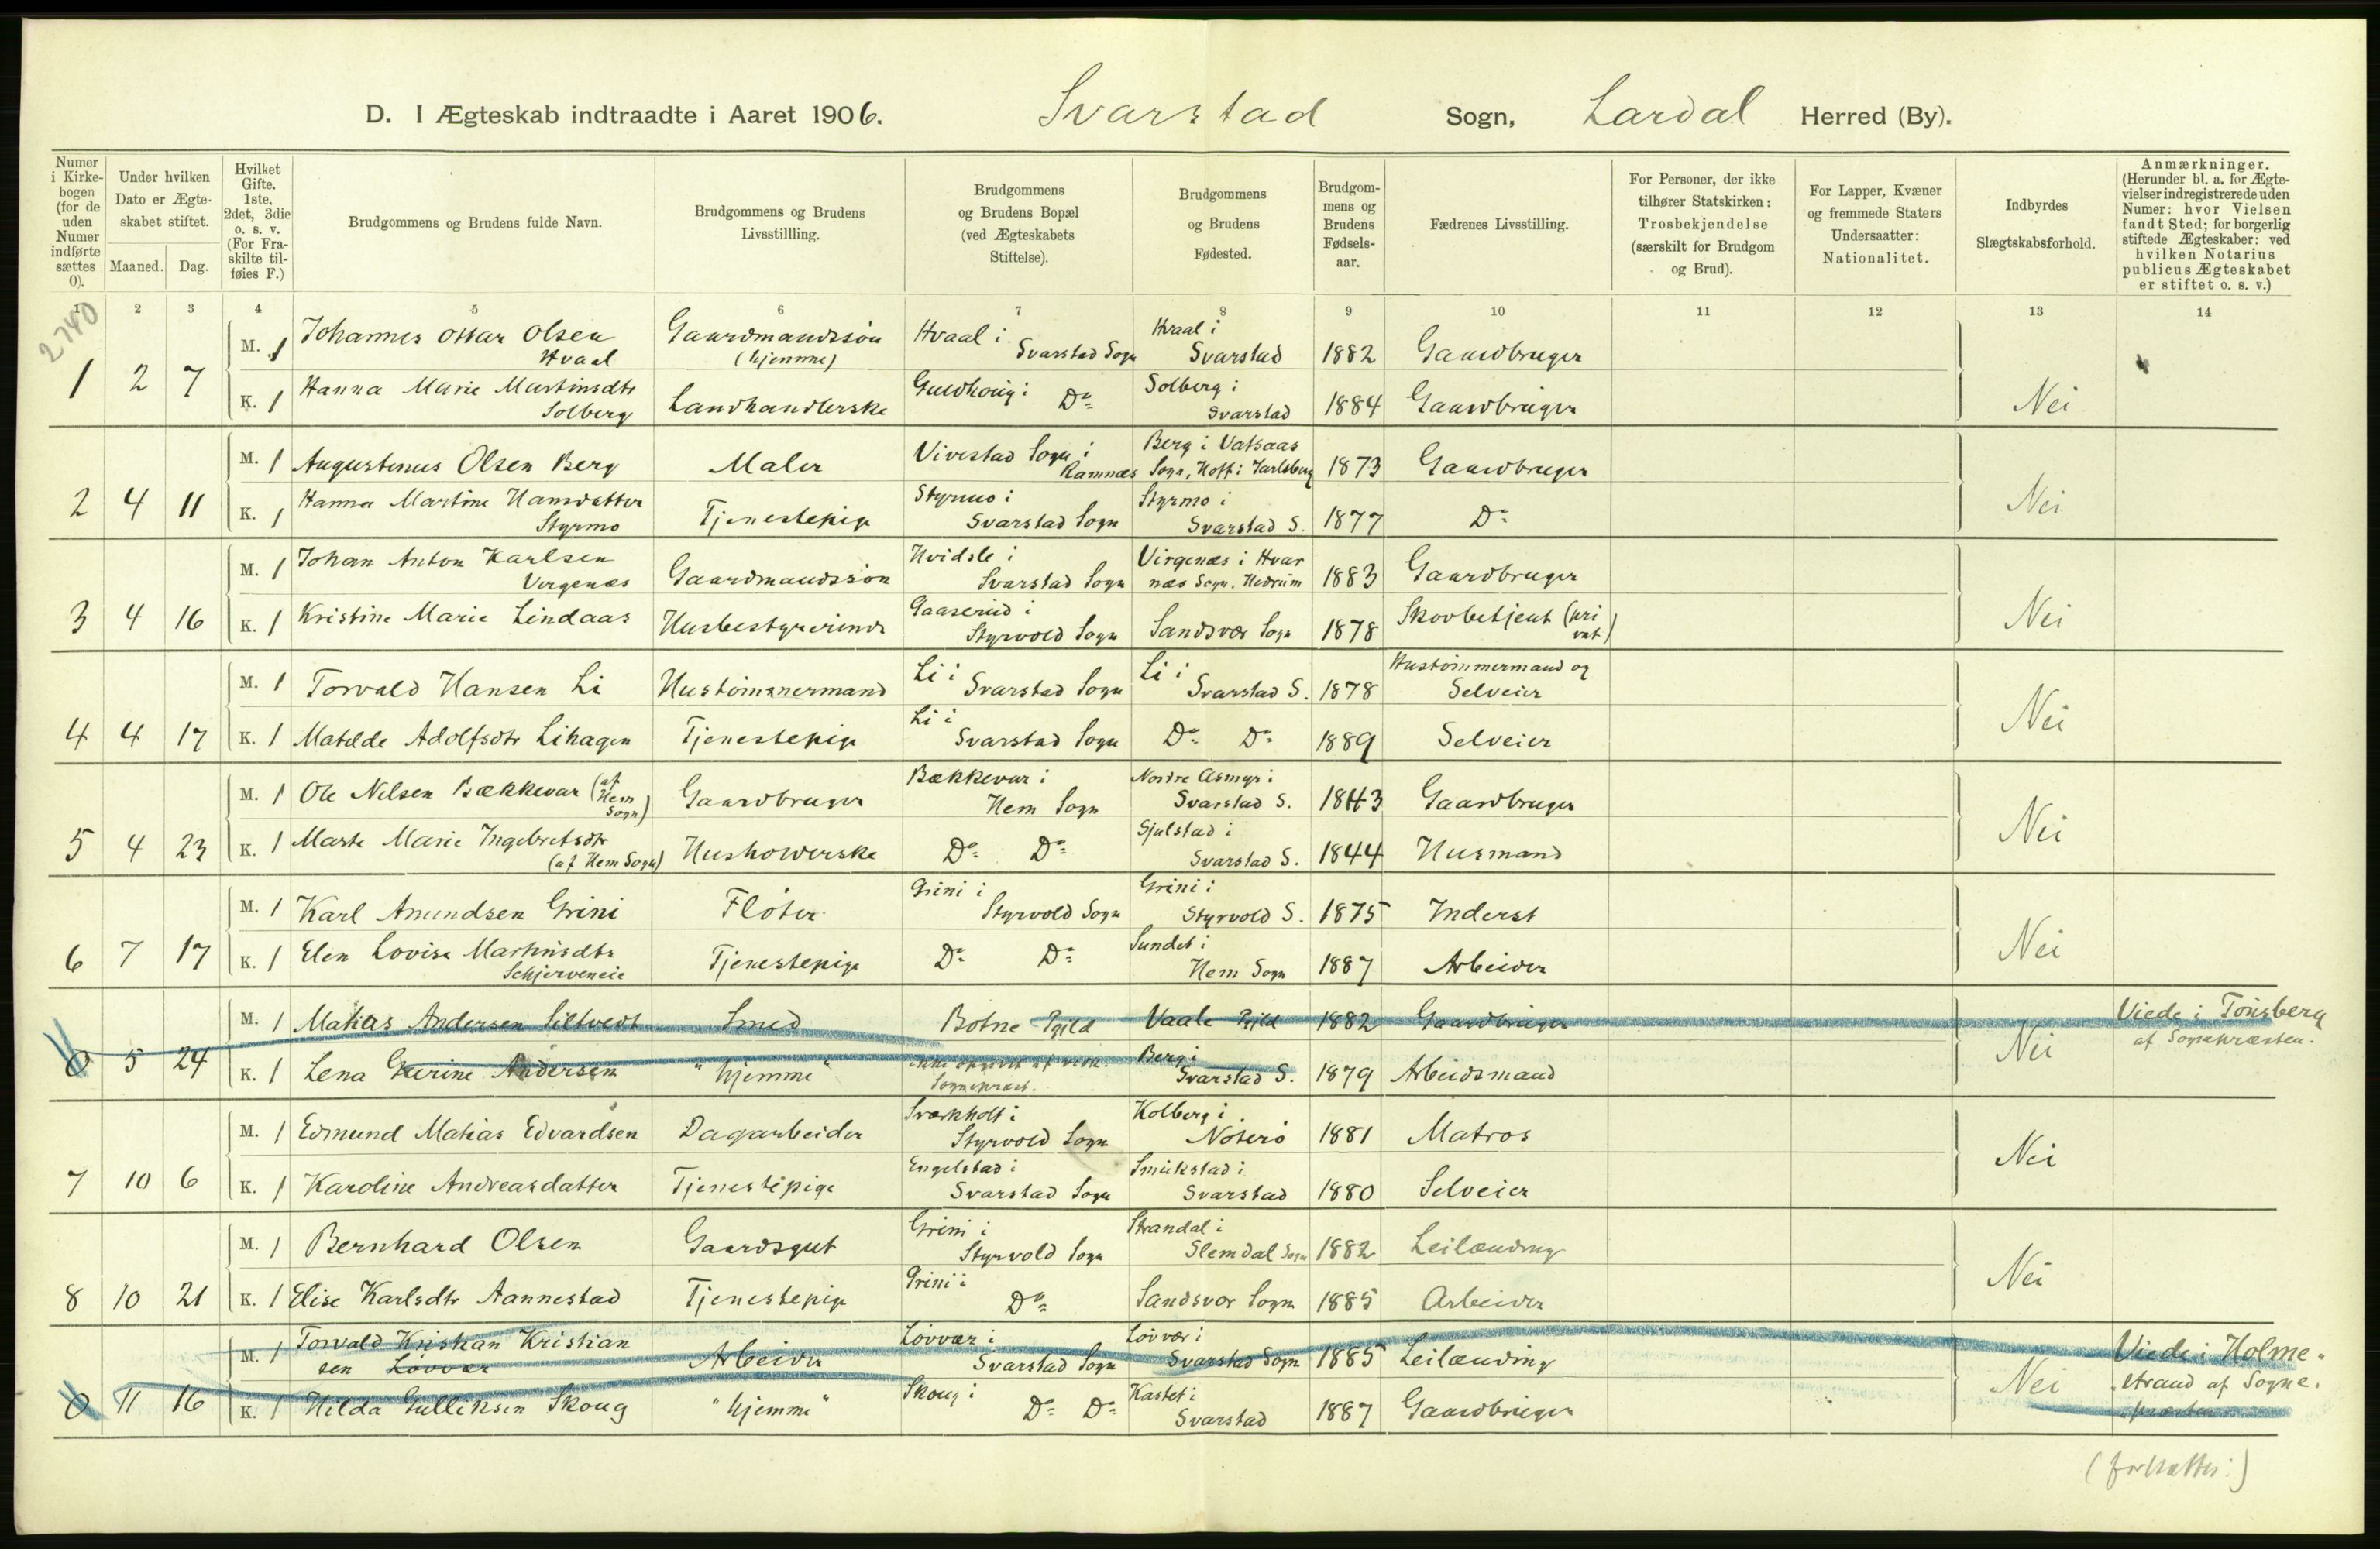 D. I Ægteskab indtraadte i Aaret 1906. Svarstad Sogn, Lardal Herred (By).
Numer i Kirkebogen (for de uden Numer indførte sættes 0).
Under hvilken Dato er Ægteskabet stiftet.
Maaned. Dag.
Hvilket Gifte. 1ste, 2det, 3die o. s. v. (For Fraskilte tilføies F.)
Brudgommens og Brudens fulde Navn.
Brudgommens og Brudens Livsstillling.
Brudgommens og Brudens Bopæl (ved Ægteskabets Stiftelse).
Brudgommens og Brudens Fødested.
Brudgommens og Brudens Fødselsaar.
Fædrenes Livsstilling.
For Personer, der ikke tilhører Statskirken: Trosbekjendelse (særskilt for Brudgom og Brud).
For Lapper, Kvæner og fremmede Staters Undersaatter: Nationalitet.
Indbyrdes Slægtskabsforhold.
Anmærkninger. (Herunder bl. a. for Ægtevielser indregistrerede uden Numer: hvor Vielsen fandt Sted; for borgerlig stiftede Ægteskaber: ved hvilken Notarius publicus Ægteskabet er stiftet o. s. v.)
1 2 3 4 5 6 7 8 9 10 11 12 13 14
2740
M. 1 Johannes Ottar Olsen Hvaal Gaardmandssøn (hjemme) Hvaal i Svarstad Sogn Hvaal i Svarstad 1882 Gaardbruger
1 2 7 K. 1 Hanna Marie Martinsdtr Solberg Landhandlerske Guldhaug i Do Solberg i Svarstad 1884 Gaardbruger Nei
M. 1 Augustinus Olsen Berg Maler Vivestad Sogn i Ramnæs Berg i Vatsaas Sogn, Hoff i Jarlsberg 1873 Gaardbruger
2 4 11 K. 1 Hanna Martine Hansdatter Styrmo Tjenestepige Styrmo i Svarstad Sogn Styrmo i Svarstad S. 1877 Do Nei
M. 1 Johan Anton Karlsen Vergenæs Gaardmandssøn Hvidsle i Svarstad Sogn Virgenæs i Hvarnæs Sogn. Hedrum 1883 Gaardbruger
3 4 16 K. 1 Kristine Marie Lindaas Husbestyrerinde Gaaserud i Styrvold Sogn Sandsvær Sogn 1878 Skovbetjent (privat) Nei
M. 1 Torvald Hansen Li Hustømmermand Li i Svarstad Sogn Li i Svarstad S. 1878 Hustømmermand og Selveier
4 4 17 K. 1 Matilde Adolfsdtr Lihagen Tjenestepige Li i Svarstad Sogn Do Do 1889 Selveier Nei
M. 1 Ole Nilsen Bækkevar (af Hem Sogn) Gaardbruger Bækkevar i Hem Sogn Nordre Asmyr i Svarstad S. 1843 Gaardbruger
5 4 23 K. 1 Marte Marie Ingebretsdtr (af Hem Sogn) Husholderske Do Do Gjulstad i Svarstad S. 1844 Husmand Nei
M. 1 Karl Amundsen Grini Fløter Grini i Styrvold Sogn Grini i Styrvold S. 1875 Inderst
6 7 17 K. 1 Elen Lovise Martinsdtr Schjerveneie Tjenestepige Do Do Sundet i Hem Sogn 1887 Arbeider Nei
M. 1 Matias Andersen Siltvedt Smed Botne Pgjld Vaale Pgjld 1882 Gaardbruger Viede i Tønsberg af Sognepræsten.
0 5 24 K. 1 Lena Andersen "hjemme" ikke opgivet af Sognepræst. Berg i Svarstad S. 1879 Arbeidsmand Nei
M. 1 Edmund Matias Edvardsen Dagarbeider Sværkholt i Styrvold Sogn Kolberg i Nøterø 1881 Matros
7 10 6 K. 1 Karoline Andreasdatter Tjenestepige Engelstad i Svarstad Sogn Smukstad i Svarstad 1880 Selveier Nei
M. 1 Bernhard Olsen Gaardsgut Grini i Styrvold Sogn Strandal i Slemdal Sogn 1882 Leilænding
8 10 21 K. 1 Elise Karlsdtr Aannestad Tjenestepige Grini i Do Sandsvær Sogn 1885 Arbeider Nei
M. 1 Torvald Kristian Kristiansen Løvvær Arbeider Løvvær i Svarstad Sogn Løvvær i Svarstad Sogn 1885 Leilænding Viede i Holmestrand af Sognepræsten
0 11 16 K. 1 Hilda Gulliksen Skoug "hjemme" Skoug i Do Do Kastet i Svarstad 1887 Gaardbruger Nei
(fortsættes:)